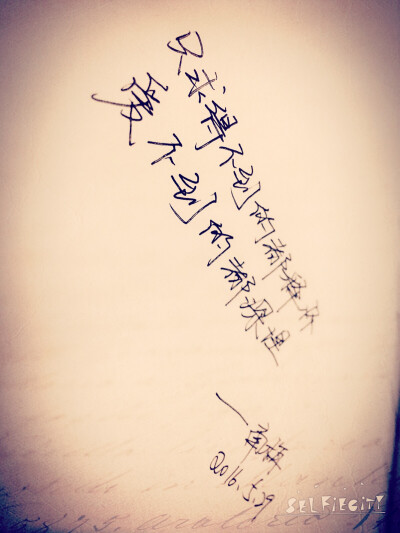 只求得不到的都释怀
爱不到的都深埋
2016.5.29
SELFIECITY